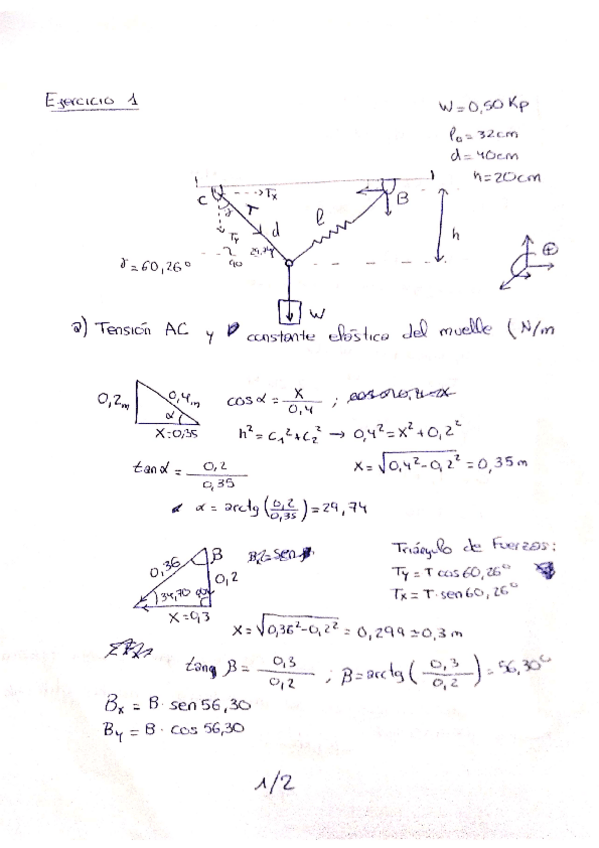 Ejercicio 1
W = 0,50 Kp
l₀ = 32cm
d = 40cm
h = 20cm
C γ T Tx l B
Ty d h
90 29,74
γ = 60,26° ⊕
W
a) Tensión AC y constante elástica del muelle (N/m
0,2m 0,4m α X=0,35
cos α = X/0,4 ;
h² = c₁² + c₂² → 0,4² = x² + 0,2²
tan α = 0,2/0,35
X = √0,4²-0,2² = 0,35 m
α = arctg (0,2/0,35) = 29,74
0,36 B 0,2
34,70 90º
X = 0,3
Triángulo de Fuerzas:
Ty = T cos 60,26°
Tx = T · sen 60,26°
X = √0,36²-0,2² = 0,299 ≃ 0,3 m
tang β = 0,3/0,2 ; β = arctg (0,3/0,2) = 56,30°
Bx = B · sen 56,30
By = B · cos 56,30
1/2